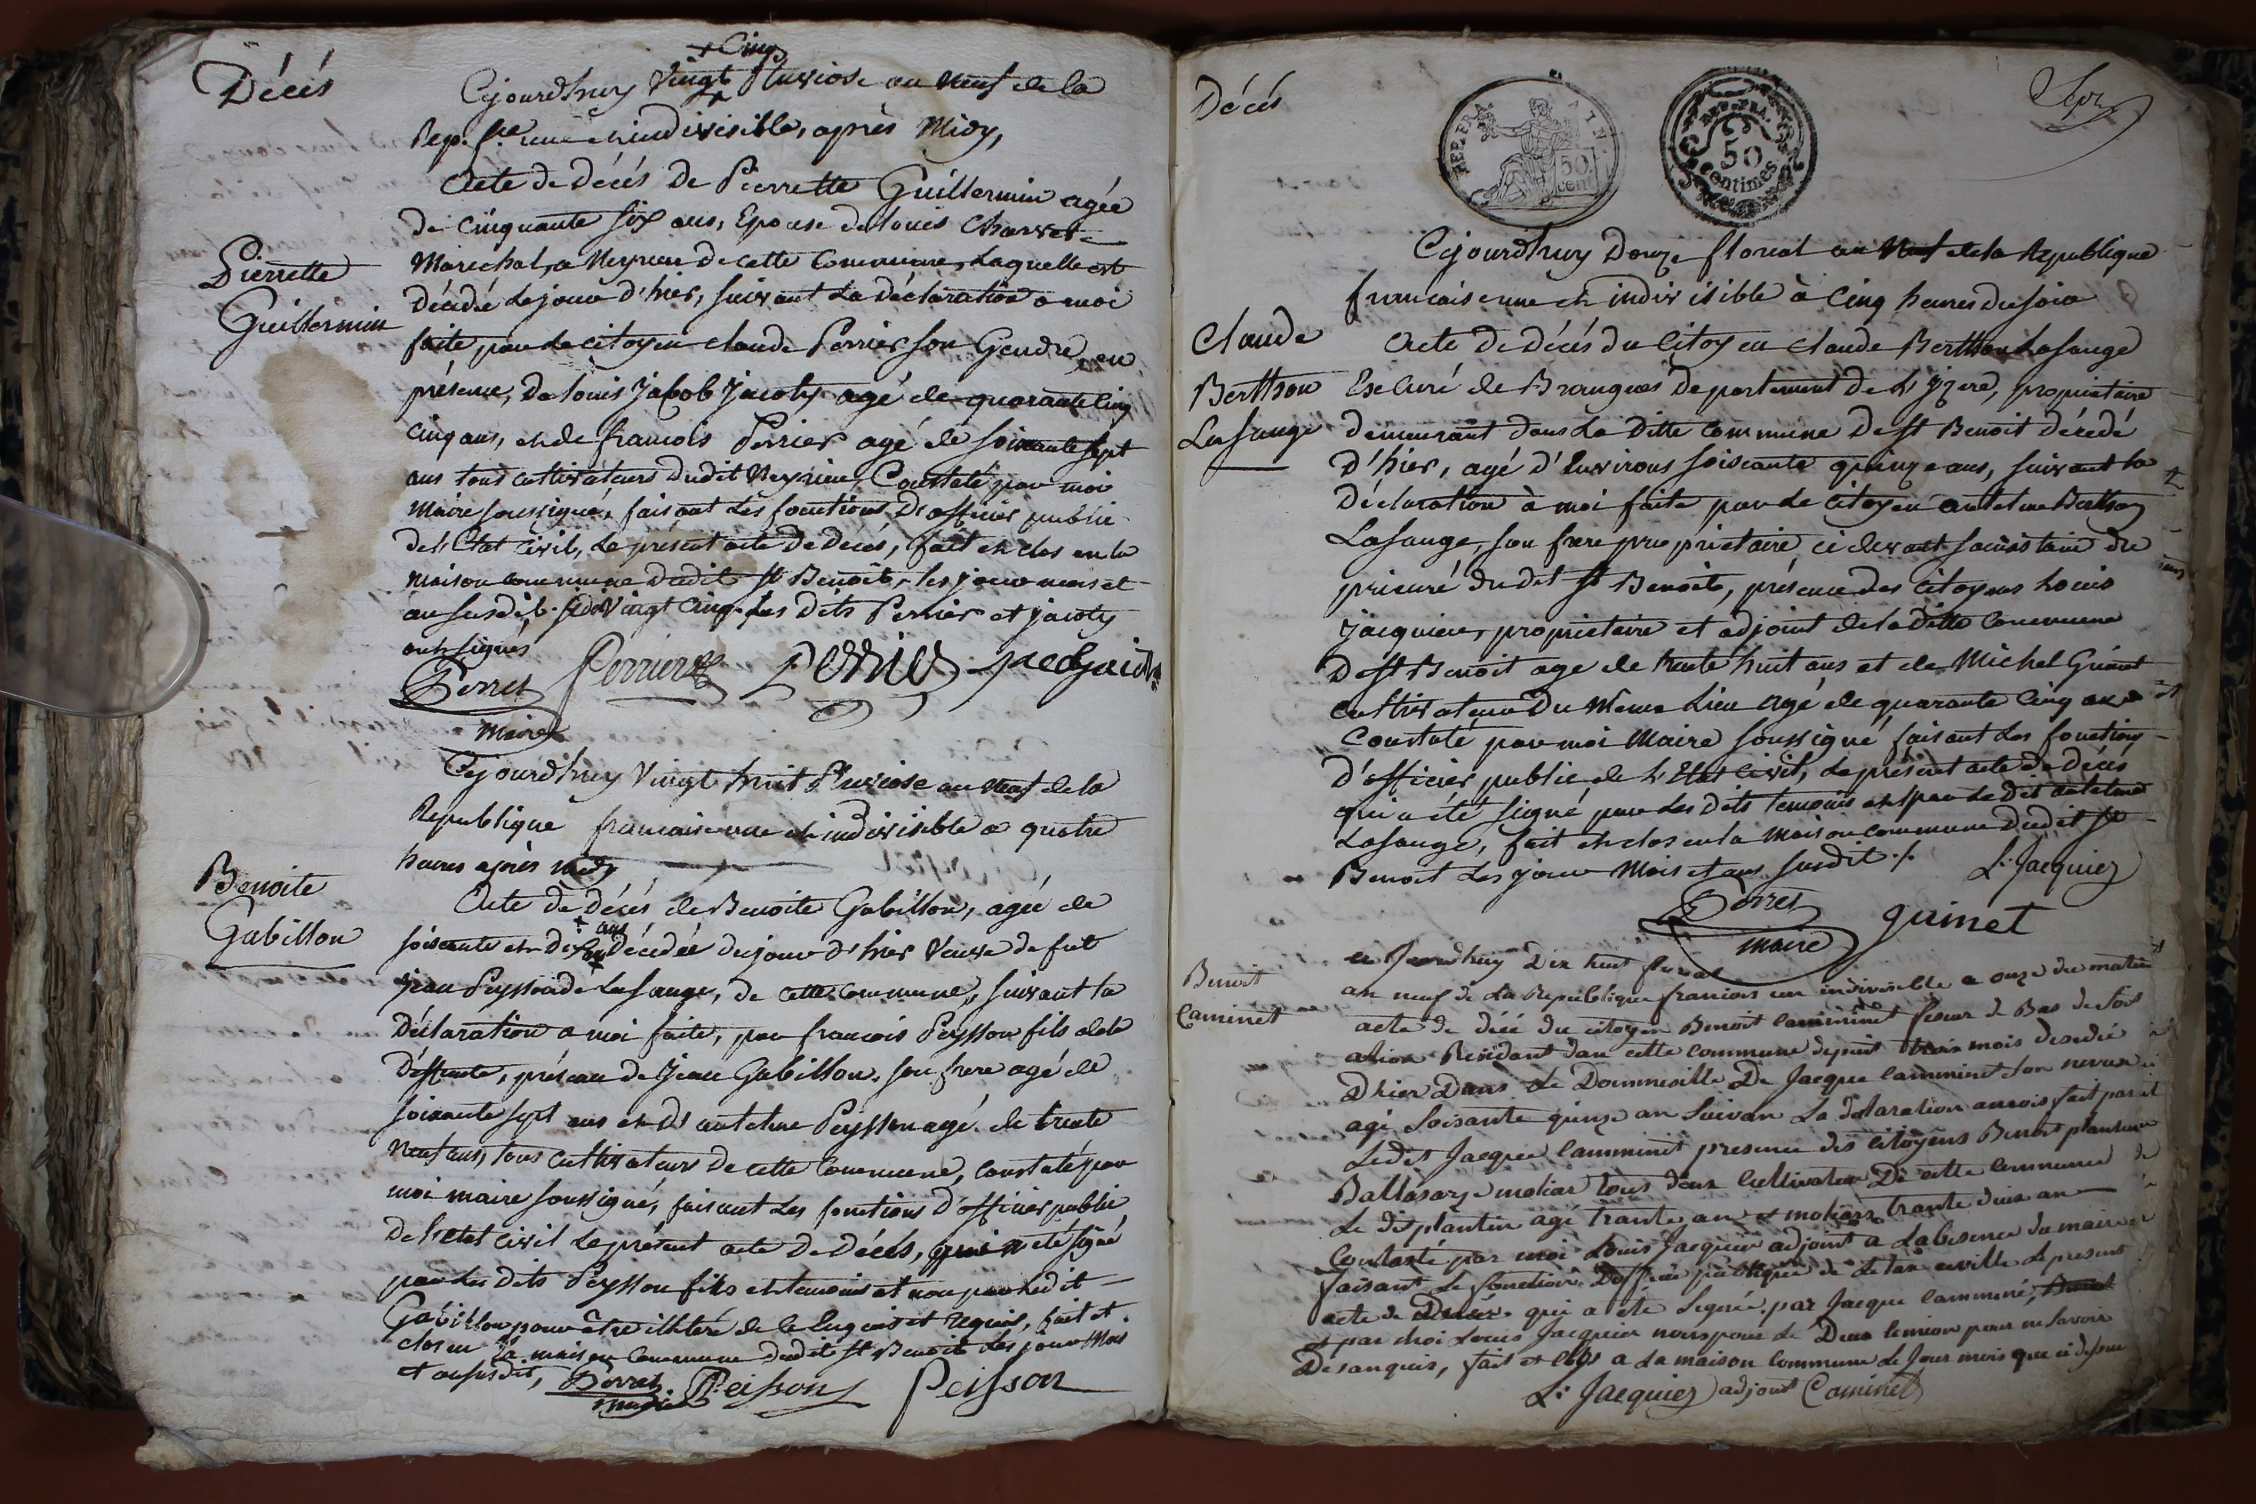 Décés
+ Cinq
Cejourdhuy Vingt Pluviose an neuf de la
Rep. f.se une et indivisible, après Midy,
Acte de décés de Pierrette Guillermin agée
de cinquante six ans, Epouse de Louis Charvet
Pierrette
Guillermin
Marechal, a Meyrieu de cette Commune, Laquelle est
décédé le jour d'hier, suivant la déclaration a moi
faite par le citoyen claude Perrier son Gendre, en
présence, de Louis Jacob Jacoty agé de quarante Cinq
cinq ans, et de francois Perrier agé de soixante sept
ans tous cultivateurs dudit Meyrieu, Constaté par moi
Maire soussigné, faisant les fonctions d'officier public
de l'Etat Civil, le présent acte de décés, fait et clos en la
maison commune dudit St Benoit, les jour mois et
an susdit. Vingt Cinq. Les dits Perrier et Jacoty
ont signés
Perret Perrier Perrier
Maire
Cejourdhuy Vingt huit Pluviose an neuf de la
Republique francaise une et indivisible a quatre
heures après midy
Benoite
Gabillon
Acte de décés de Benoite Gabillon, agée de
+ ans
soixante et dix décédée du jour d'hier Veuve de fut
jean Peysson de Lasauge, de cette commune, suivant la
Déclaration a moi faite, par francois Peysson fils de la
déffunte, présence de Jean Gabillon, son frere agé de
soixante sept ans et d'antelme Peysson agé de trente
Neuf ans, tous cultivateurs de cette Commune, constaté par
moi maire soussigné, faisant les fonctions d'officier public
de l'etat civil le présent acte de décés, qui a été signé
par les dits Peysson fils et temoins et non par ledit
Gabillon pour être illiteré de le enquis et requis, fait et
clos en la maison Commune dudit St Benoit les jour Mois
et an susdit, Perret Peisson Peisson
maire
Décés
REP. FRA. 50 cent.
REP. FRA. 50 Centimes
Sept
Cejourdhuy Douze floreal an Neuf de la Republique
francaise une et indivisible à Cinq heures du soir
Claude
Berthon
Lasauge
Acte de décés du Citoyen Claude Berthon Lasauge
Exc Curé de Brangues département de L'yzere, propriétaire
demeurant dans La ditte commune De St Benoit décédé
D'hier, agé d'Environs soixante quinze ans, suivant la
Déclaration à moi faite par le citoyen antelme Berthon
Lasauge, son frere propriétaire ci devant sacristain du
prieuré dudit St Benoit, présence des citoyens Louis
Jacquier, propriétaire et adjoint de la ditte Commune
De St Benoit age de trente huit ans et de Michel Guinet
cultivateur Du Même Lieu agé de quarante Cinq ans
Constaté par moi Maire soussigné faisant les fonctions
D'officier public de l'Etat Civil, le présent acte de décés
qui a été signé par les dits temoins et par le dit antelme
Lasauge, fait et clos en la Maison commune dudit St
Benoit les jour Mois et an susdit ./.
L. Jacquier
Perret guinet
maire
Benoit
Caminet
ce Jourdhuy Dix huit floreal
an neuf de La Republique francois un indivisible a onze du matin
acte de décé du citoyen Benoit Camminet de Bas de
Residant dan cette commune depuit trois mois desedé
Dhier Dans Le Dommesille De Jacque Camminet son neveu
agé Soisante quinze an Suivan La Délaration a mois fait par
Ledit Jacque Camminet presence des citoyens Benoit plantin
Baltasary moliar tous deux Cultivateur De cette Commune
Le dit plantin agé trante an et moliars trante deux an
Contasté par moi Louis Jacquier adjoint a Labsence du maire
faisant Le fonction Doffice publique de Letas civille Le present
acte de Décés qui a été Signée par Jacque Camminé,
et par moi Louis Jacquier nonspour Le Deux temion pour ne savoir
De sanquis, fait et clos a La maison Commune Le Jour mois que ci dessus
L. Jacquier adjoint Caminet